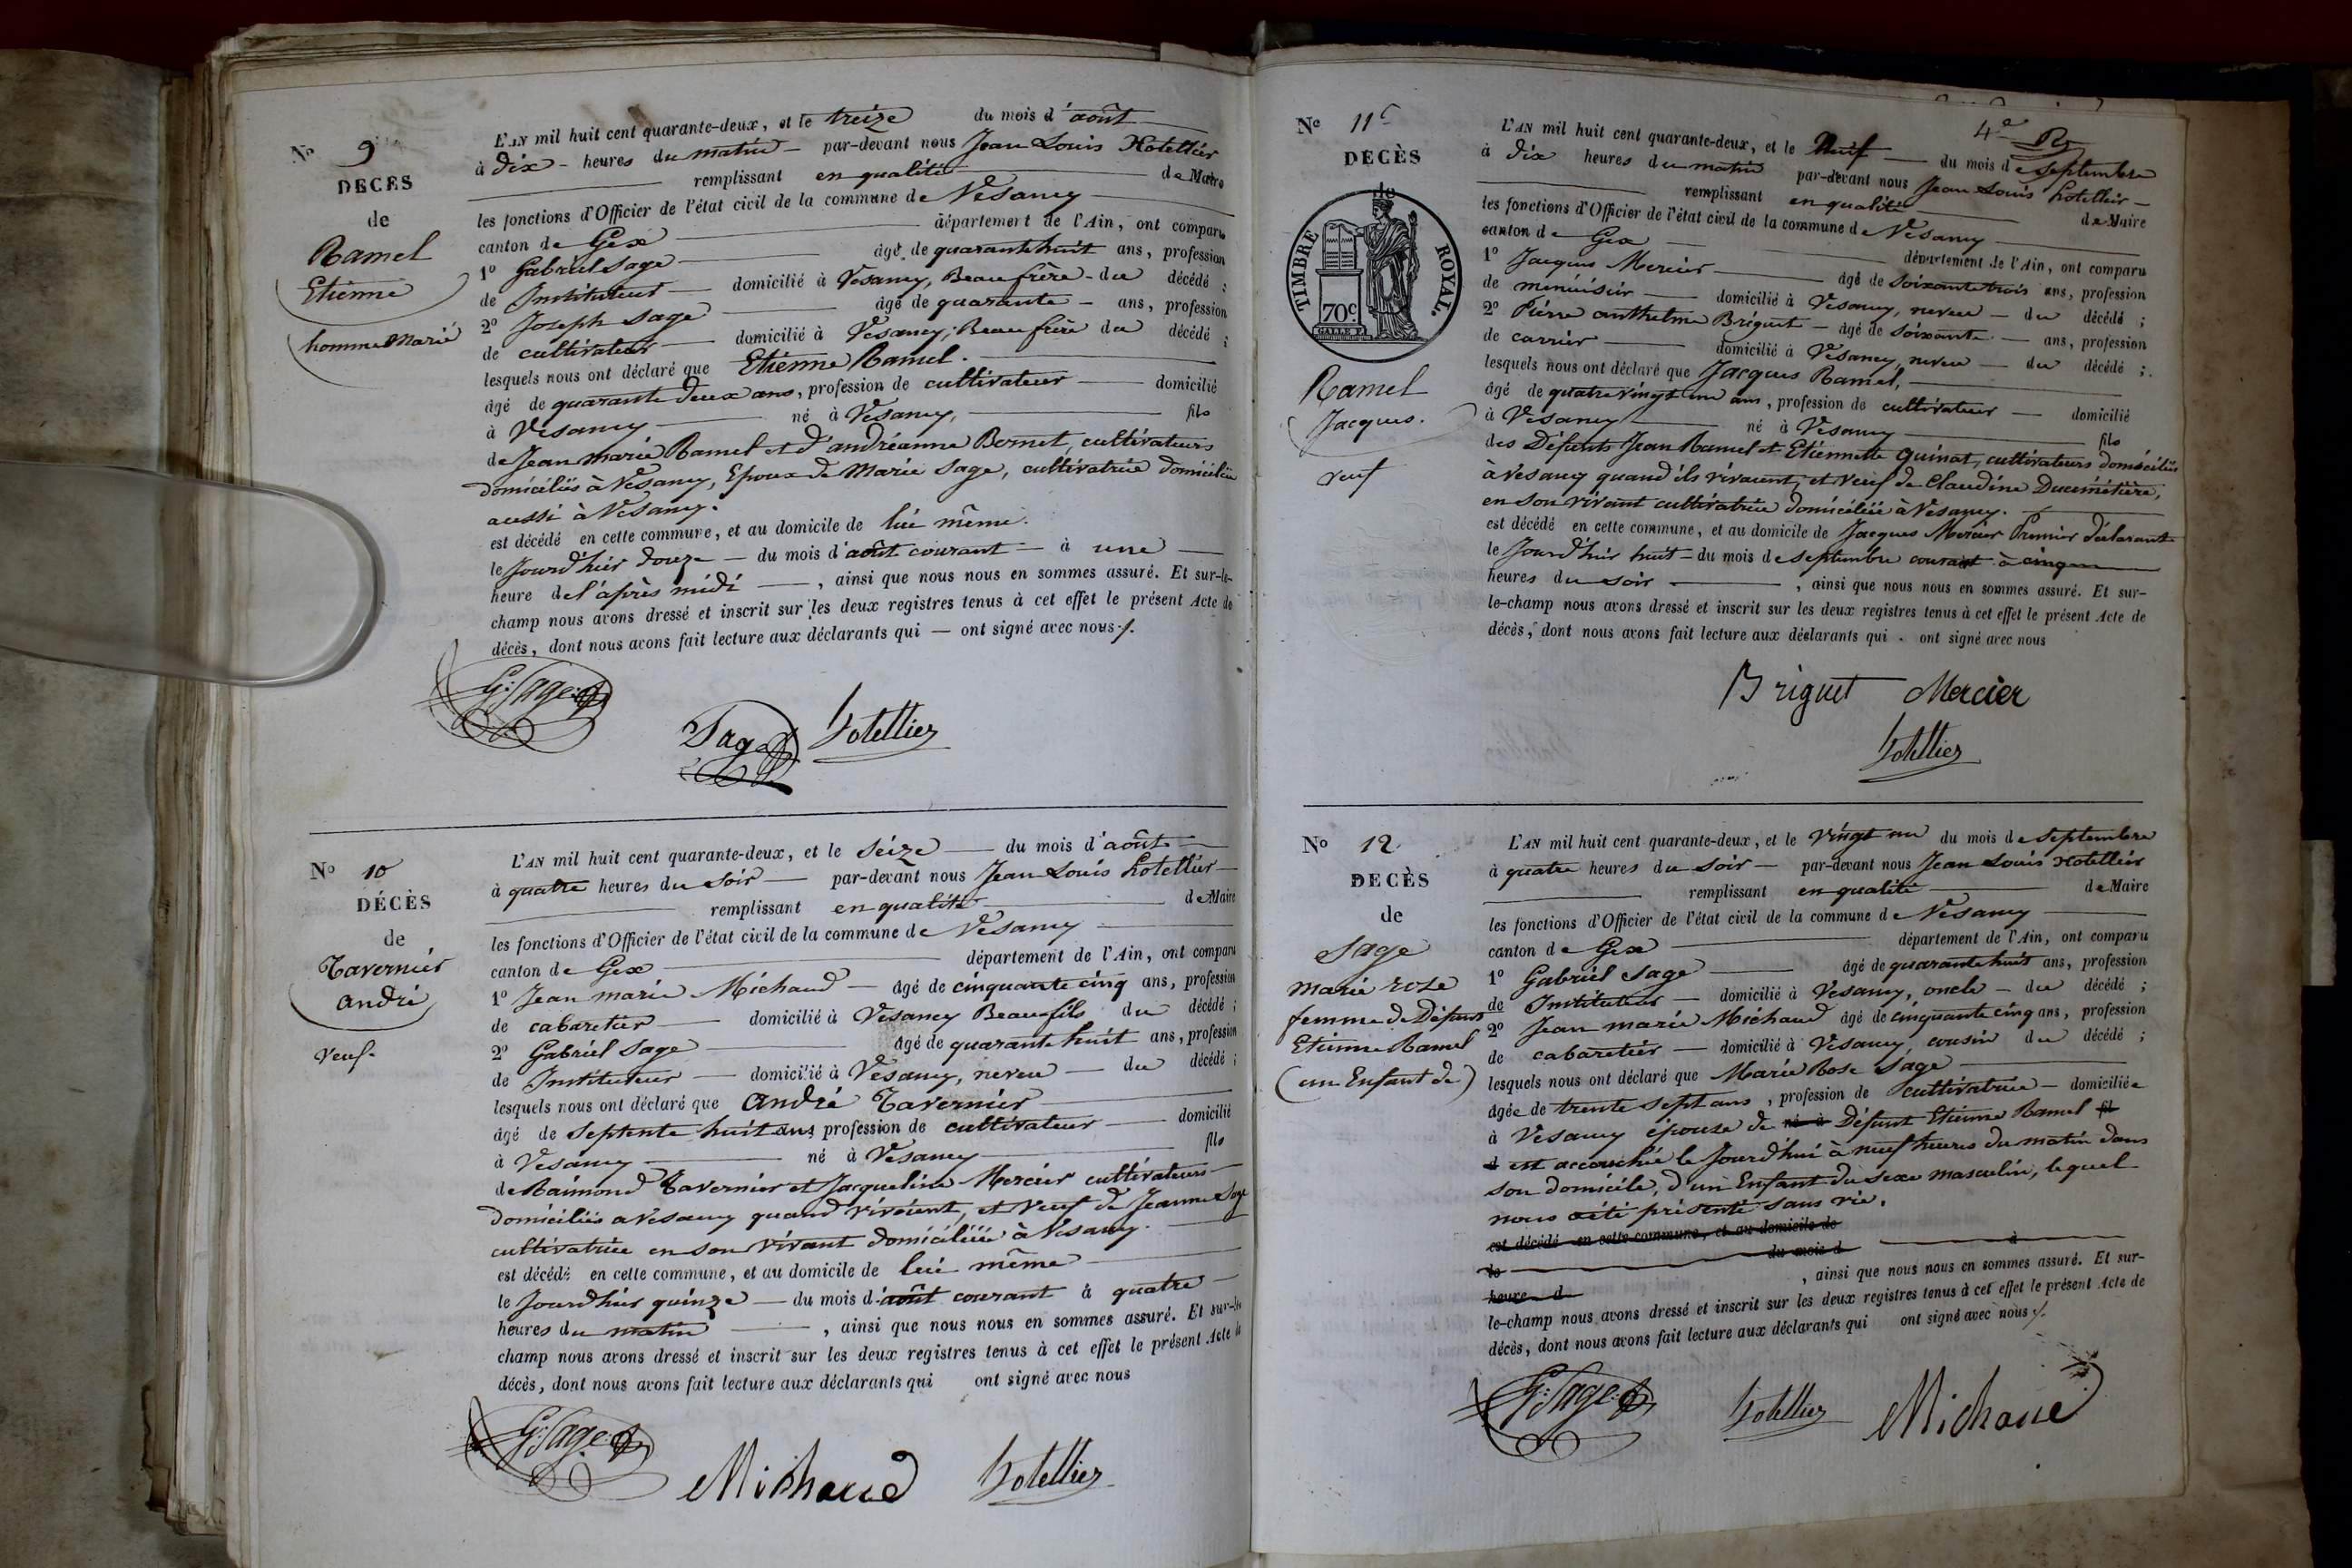 No 9
DÉCÈS
de
Ramel
Etienne
homme Marié
L'AN mil huit cent quarante-deux, et le treize du mois d'août
à dix heures du matin par-devant nous Jean Louis Hotellier
remplissant en qualité de Maire
les fonctions d'Officier de l'état civil de la commune de Vesancy
canton de Gex département de l'Ain, ont comparu
1º Gabriel Sage âgé de quarante huit ans, profession
de Instituteur domicilié à Vesancy, Beau frère du décédé ;
2º Joseph Sage âgé de quarante ans, profession
de cultivateur domicilié à Vesancy, Beau frère du décédé ;
lesquels nous ont déclaré que Etienne Ramel.
âgé de quarante deux ans, profession de cultivateur domicilié
à Vesancy né à Vesancy, fils
de Jean marie Ramel et d'andréanne Bornet, cultivateurs
domiciliés à Vesancy, Epoux de Marie Sage, cultivatrice domiciliée
aussi à Vesancy.
est décédé en cette commune, et au domicile de lui même.
le Jourd'hier douze du mois d'août courant à une
heure de l'après midi, ainsi que nous nous en sommes assuré. Et sur-le-
champ nous avons dressé et inscrit sur les deux registres tenus à cet effet le présent Acte de
décès, dont nous avons fait lecture aux déclarants qui ont signé avec nous
G. Sage
Sage Hotellier
No 10
DÉCÈS
de
Tavernier
andré
veuf
L'AN mil huit cent quarante-deux, et le seize du mois d'août
à quatre heures du soir par-devant nous Jean Louis hotellier
remplissant en qualité de Maire
les fonctions d'Officier de l'état civil de la commune de Vesancy
canton de Gex département de l'Ain, ont comparu
1º Jean marie Michaud âgé de cinquante cinq ans, profession
de cabaretier domicilié à Vesancy Beau fils du décédé ;
2º Gabriel Sage âgé de quarante huit ans, profession
de Instituteur domicilié à Vesancy, neveu du décédé ;
lesquels nous ont déclaré que andré Tavernier
âgé de septente huit ans profession de cultivateur domicilié
à Vesancy né à Vesancy fils
de Raimond Tavernier et Jacqueline Mercier cultivateurs
domiciliés a Vesancy quand vivoient, et veuf de Jeanne Sage
cultivatrice en son vivant domiciliée à Vesancy.
est décédé en cette commune, et au domicile de lui même
le Jourd'hier quinze du mois d'août courant à quatre
heures du matin, ainsi que nous nous en sommes assuré. Et sur-le-
champ nous avons dressé et inscrit sur les deux registres tenus à cet effet le présent Acte de
décès, dont nous avons fait lecture aux déclarants qui ont signé avec nous
G. Sage
Michaud Hotellier
4e
No 11
DÉCÈS
de
TIMBRE ROYAL.
70c.
Ramel
Jacques.
veuf
L'AN mil huit cent quarante-deux, et le Neuf du mois de septembre
à dix heures du matin par-devant nous Jean Louis hotellier
remplissant en qualité de Maire
les fonctions d'Officier de l'état civil de la commune de Vesancy
canton de Gex département de l'Ain, ont comparu
1º Jacques Mercier âgé de soixante trois ans, profession
de menuisier domicilié à Vesancy, neveu du décédé ;
2º Pierre anthelme Briguet âgé de soixante ans, profession
de carrier domicilié à Vesancy, neveu du décédé ;
lesquels nous ont déclaré que Jacques Ramel,
âgé de quatre vingt un ans, profession de cultivateur domicilié
à Vesancy né à Vesancy fils
des Défunts Jean Ramel et Etiennette Quinat, cultivateurs domiciliés
à Vesancy quand ils vivaient, et veuf de Claudine Ducimetière,
en son vivant cultivatrice domiciliée à Vesancy.
est décédé en cette commune, et au domicile de Jacques Mercier Premier déclarant
le Jourd'hier huit du mois de septembre courant à cinq
heures du soir, ainsi que nous nous en sommes assuré. Et sur-
le-champ nous avons dressé et inscrit sur les deux registres tenus à cet effet le présent Acte de
décès, dont nous avons fait lecture aux déclarants qui ont signé avec nous
Briguet Mercier
Hotellier
No 12
DÉCÈS
de
Sage
marie roze
femme de Défunt
Etienne Ramel
(un Enfant de)
L'AN mil huit cent quarante-deux, et le vingt un du mois de septembre
à quatre heures du soir par-devant nous Jean Louis Hotellier
remplissant en qualité de Maire
les fonctions d'Officier de l'état civil de la commune de Vesancy
canton de Gex département de l'Ain, ont comparu
1º Gabriel Sage âgé de quarante huit ans, profession
de Instituteur domicilié à Vesancy, oncle du décédé ;
2º Jean marie Michaud âgé de cinquante cinq ans, profession
de cabaretier domicilié à Vesancy cousin du décédé ;
lesquels nous ont déclaré que Marie Rose Sage
âgée de trente sept ans, profession de cultivatrice domiciliée
à Vesancy épouse de né à Défunt Etienne Ramel fil
d est accouchée le Jourd'hui à neuf heures du matin dans
son domicile, d'un Enfant du sexe masculin, lequel
nous a été présenté sans vie.
est décédé en cette commune, et au domicile de
le du mois d à
heure d, ainsi que nous nous en sommes assuré. Et sur-
le-champ nous avons dressé et inscrit sur les deux registres tenus à cet effet le présent Acte de
décès, dont nous avons fait lecture aux déclarants qui ont signé avec nous
G. Sage Hotellier Michaud